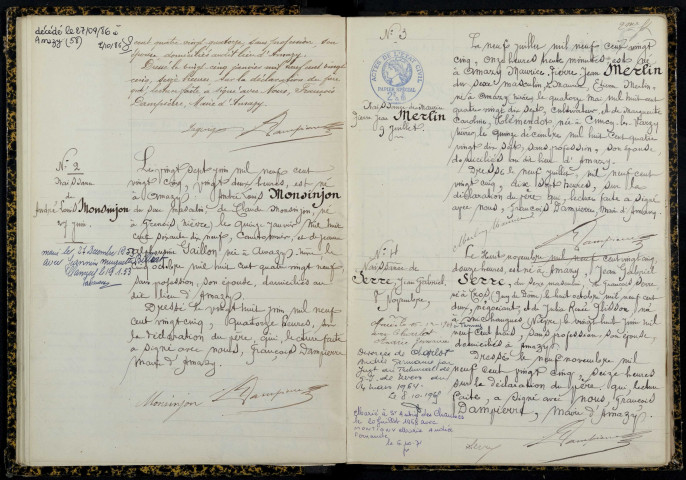 décédé le 27/09/86 à
Amazy (58)
cent quatre vingt quatorze, sans profession, son
épouse domiciliés au dit lieu d'Amazy.
Dressé le vingt cinq janvier mil neuf cent vingt
cinq, seize heures, sur la déclaration du père
qui, lecture faite, a signé avec Nous, François
Dampierre, Maire d'Amazy.
Dampierre
N° 2
Naissance
André Louis Monsinjon
27 juin.
marié le 26 Décembre 1952
avec
Le vingt sept juin mil neuf cent
vingt cinq, vingt deux heures, est né
à Amazy André Louis Monsinjon
du sexe masculin, de Claude Monsinjon, né
à Grenois, Nièvre, le quinze janvier mil huit
cent soixante dix neuf, Cantonnier, et de Jeanne
Gaillon née à Amazy, Nièvre, le
octobre mil huit cent quatre vingt neuf
sans profession, son épouse, domiciliés au
dit lieu d'Amazy.
Dressé le vingt huit juin mil neuf
cent vingt cinq, quatorze heures, sur
la déclaration du père, qui, lecture faite
a signé avec nous, François Dampierre
Maire d'Amazy.
Monsinjon
Dampierre
N° 3
ACTES DE L'ETAT CIVIL
PAPIER SPECIAL
Naissance de Maurice
Pierre Jean Merlin
9 Juillet.
Le neuf juillet mil neuf cent vingt
cinq, onze heures trente minutes, est né
à Amazy Maurice Pierre Jean Merlin
du sexe masculin, de Maurice, Merlin,
né à Amazy, Nièvre, le quatorze mai mil huit cent
quatre vingt dix sept, Cultivateur, et de Marguerite
Caroline, Clémendot, née à Cuncy les Varzy
Nièvre, le quinze décembre mil huit cent quatre
vingt dix sept, sans profession, son épouse,
domiciliés au dit lieu d'Amazy.
Dressé le neuf juillet, mil neuf cent
vingt cinq, dix sept heures, sur la
déclaration du père qui, lecture faite a signé
avec nous, François Dampierre Maire d'Amazy.
Merlin Maurice
Dampierre
N° 4
Naissance de
Serre, Jean Gabriel,
8 Novembre,
Divorcé de Charlot
Andrée Germaine par
Jugt du Tribunal de
G.I. de Nevers du
4 mars 1964.
Le 8.10.1968
Marié à St Aubin des Chaumes
le 20 juillet 1968 avec
Le huit novembre mil neuf cent vingt cinq,
douze heures, est né à Amazy, Jean Gabriel
Serre, du sexe masculin, de François Serre
né à Cros, (Puy de Dôme, le huit octobre mil neuf cent
deux, négociant, et de Julia Rosé Glisson, née
à Nièvre, le vingt huit juin mil
neuf cent sans profession, son épouse,
domiciliés à Amazy.
Dressé le neuf novembre mil
neuf cent vingt cinq, seize heures
sur la déclaration du père, qui, lecture
faite, a signé avec nous, François
Dampierre, Maire d'Amazy.
Serre
Dampierre